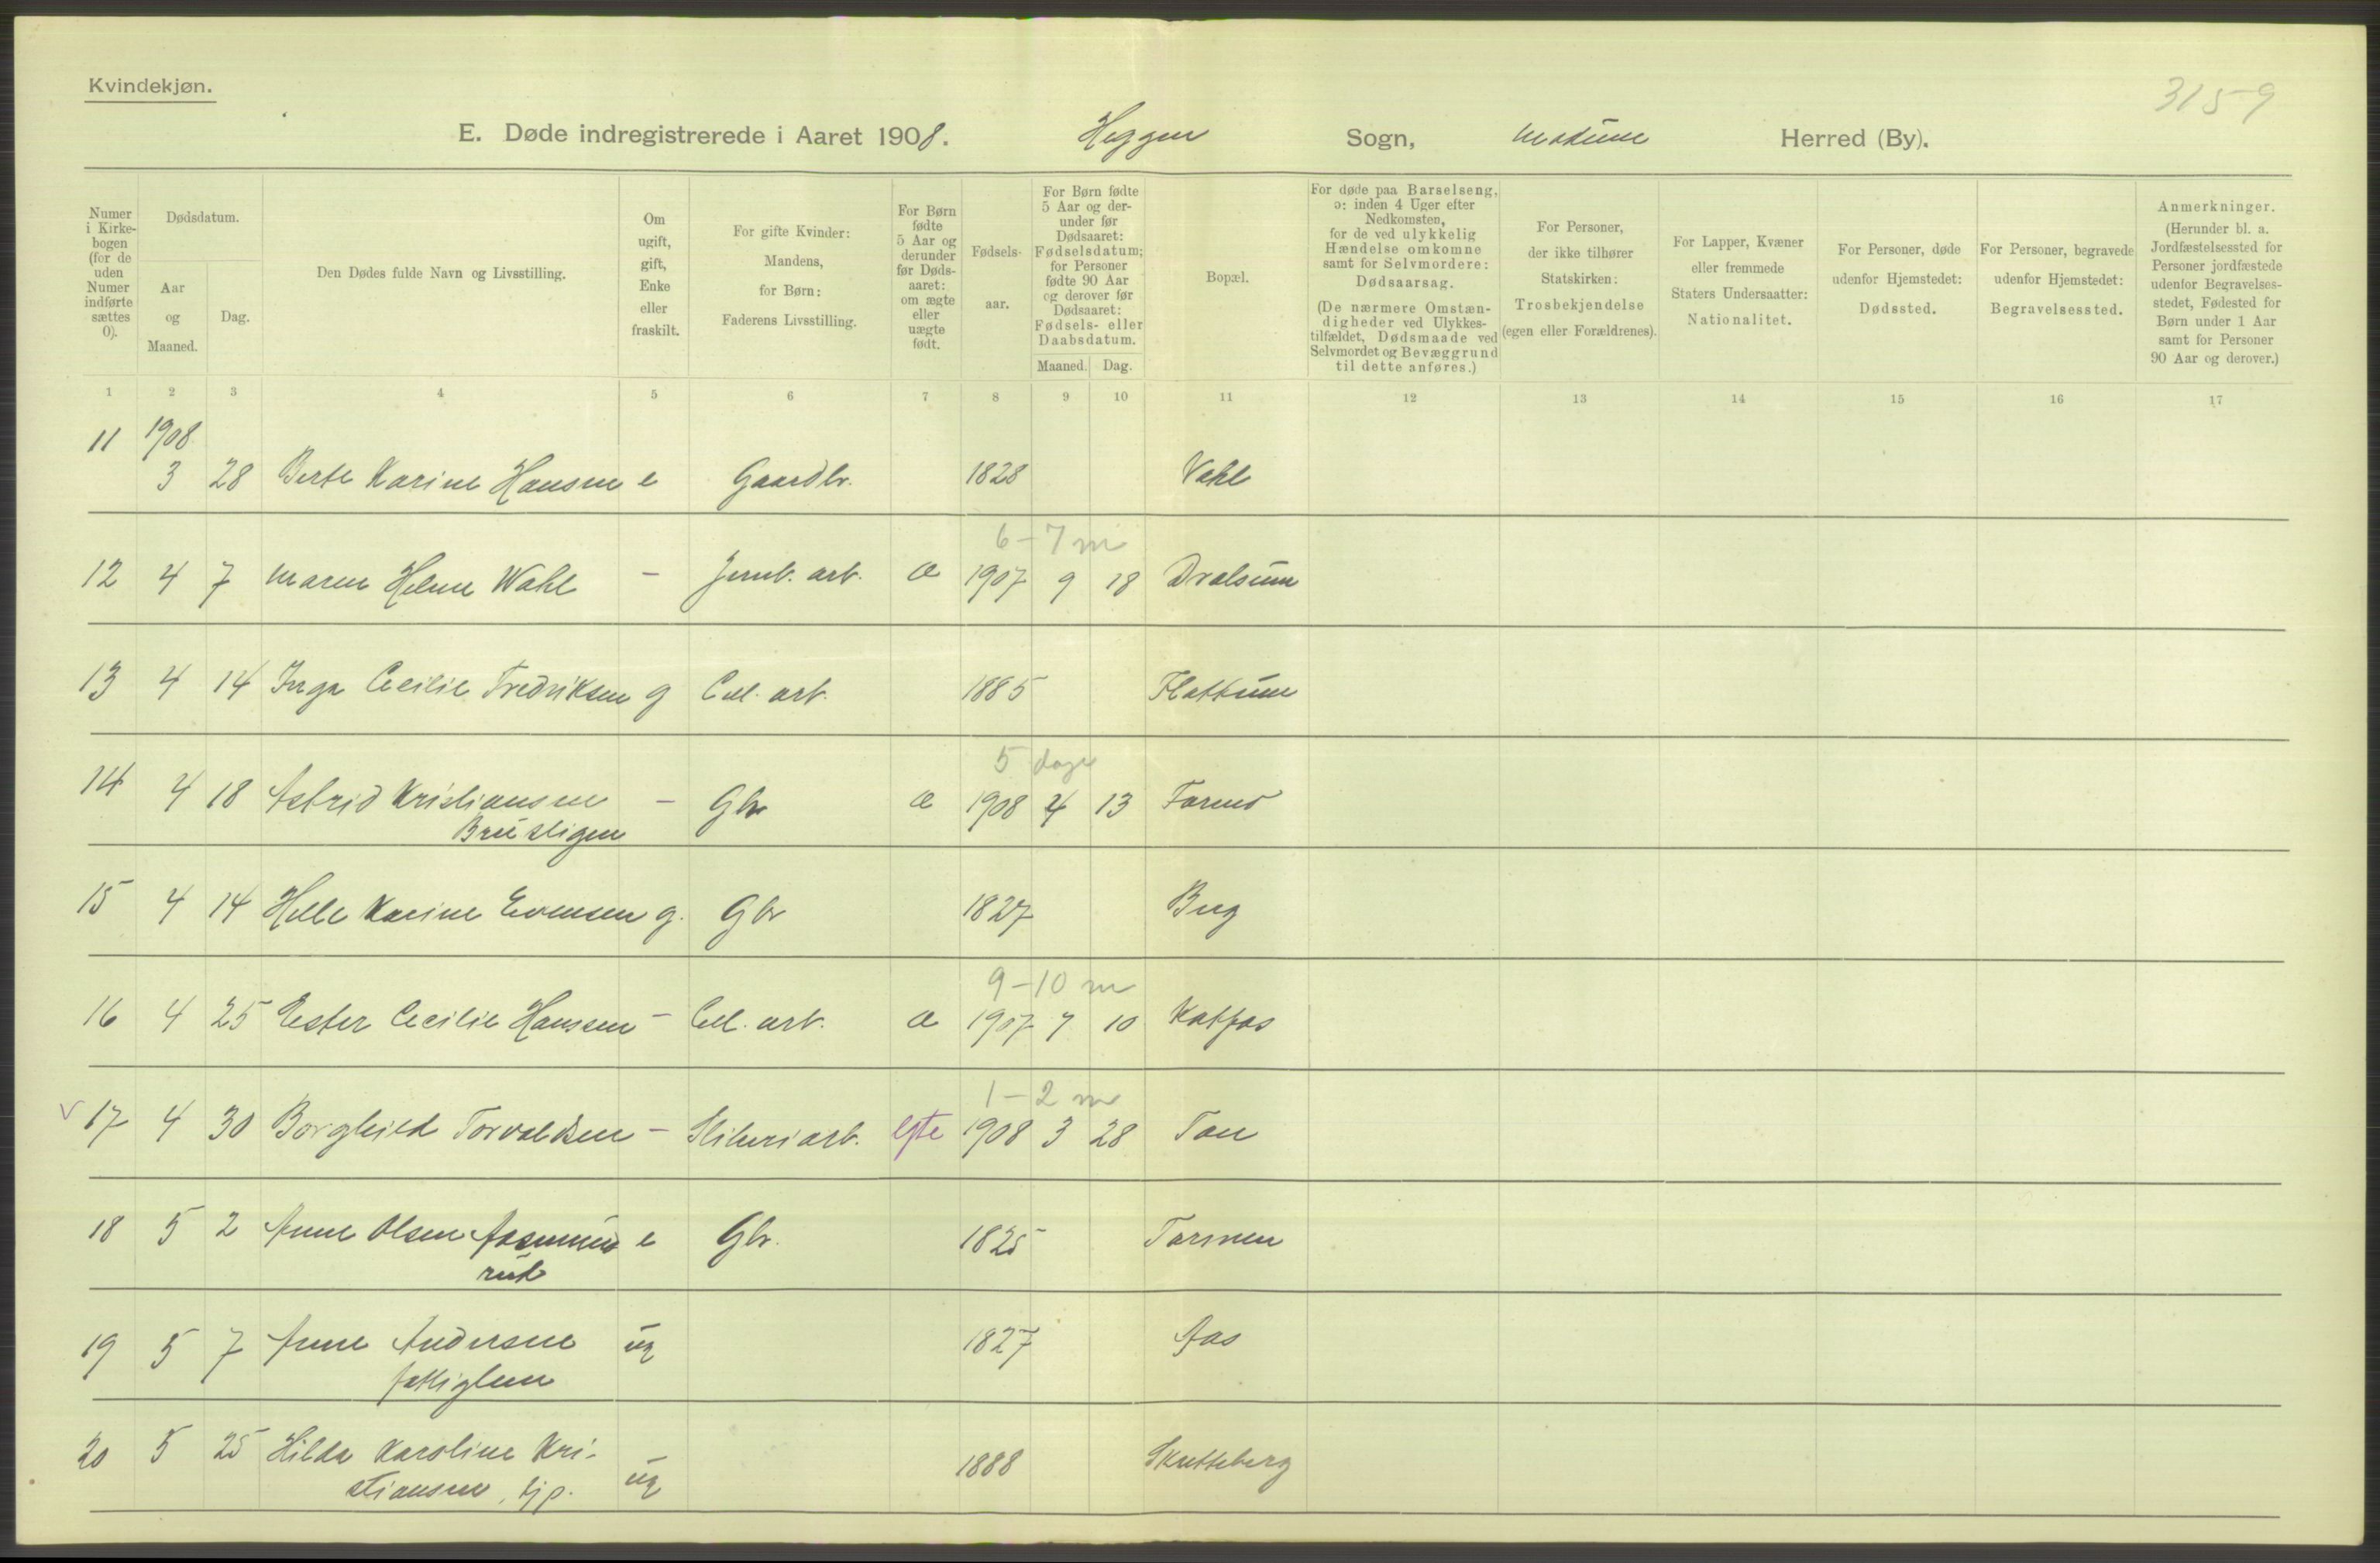 Kvindekjøn.
3159
E. Døde indregistrerede i Aaret 1908. Heggen Sogn, Modum Herred (By).
Numer i Kirke-bogen (for de uden Numer indførte sættes 0).
Dødsdatum.
Aar og Maaned.
Dag.
Den Dødes fulde Navn og Livsstilling.
Om ugift, gift, Enke eller fraskilt.
For gifte Kvinder: Mandens, for Børn: Faderens Livsstilling.
For Børn fødte 5 Aar og derunder før Døds-aaret: om ægte eller uægte født.
Fødsels-aar.
For Børn fødte 5 Aar og der-under før Dødsaaret: Fødselsdatum; for Personer fødte 90 Aar og derover før Dødsaaret: Fødsels- eller Daabsdatum.
Maaned. Dag.
Bopæl.
For døde paa Barselseng, ɔ: inden 4 Uger efter Nedkomsten, for de ved ulykkelig Hændelse omkomne samt for Selvmordere: Dødsaarsag.
(De nærmere Omstæn-digheder ved Ulykkes-tilfældet, Dødsmaade ved Selvmordet og Bevæggrund til dette anføres.)
For Personer, der ikke tilhører Statskirken: Trosbekjendelse (egen eller Forældrenes).
For Lapper, Kvæner eller fremmede Staters Undersaatter: Nationalitet.
For Personer, døde udenfor Hjemstedet: Dødssted.
For Personer, begravede udenfor Hjemstedet: Begravelsessted.
Anmerkninger. (Herunder bl. a. Jordfæstelsessted for Personer jordfæstede udenfor Begravelses-stedet, Fødested for Børn under 1 Aar samt for Personer 90 Aar og derover.)
1 2 3 4 5 6 7 8 9 10 11 12 13 14 15 16 17
11 1908
3 28 Berte Karine Hansen e Gaardbr. 1828 Vahl
6-7 m
12 4 7 Maren Helene Wahl - Jernb. arb. æ 1907 9 18 Dralsum
13 4 14 Inga Cecilie Fredriksen g Cel. arb. 1885 Flattum
5 dage
14 4 18 Astrid Kristiansen - Gbr æ 1908 4 13
Brustigen
15 4 14 Helle Karine Evensen g. Gbr 1827 Berg
9-10 m
16 4 25 Ester Cecilie Hansen - Cel. arb. æ 1907 7 10 Katfos
1-2 m
v 17 4 30 Borghild Torvaldsen - Sliberiarb. egte 1908 3 28
18 5 2 Anne Olsen Aasmund e Gbr. 1825
rud
19 5 7 Anne Andersen ug 1827 Aas
fattiglem
20 5 25 Hilda Karoline Kri-
stiansen, tjp. ug 1888 Skutteberg